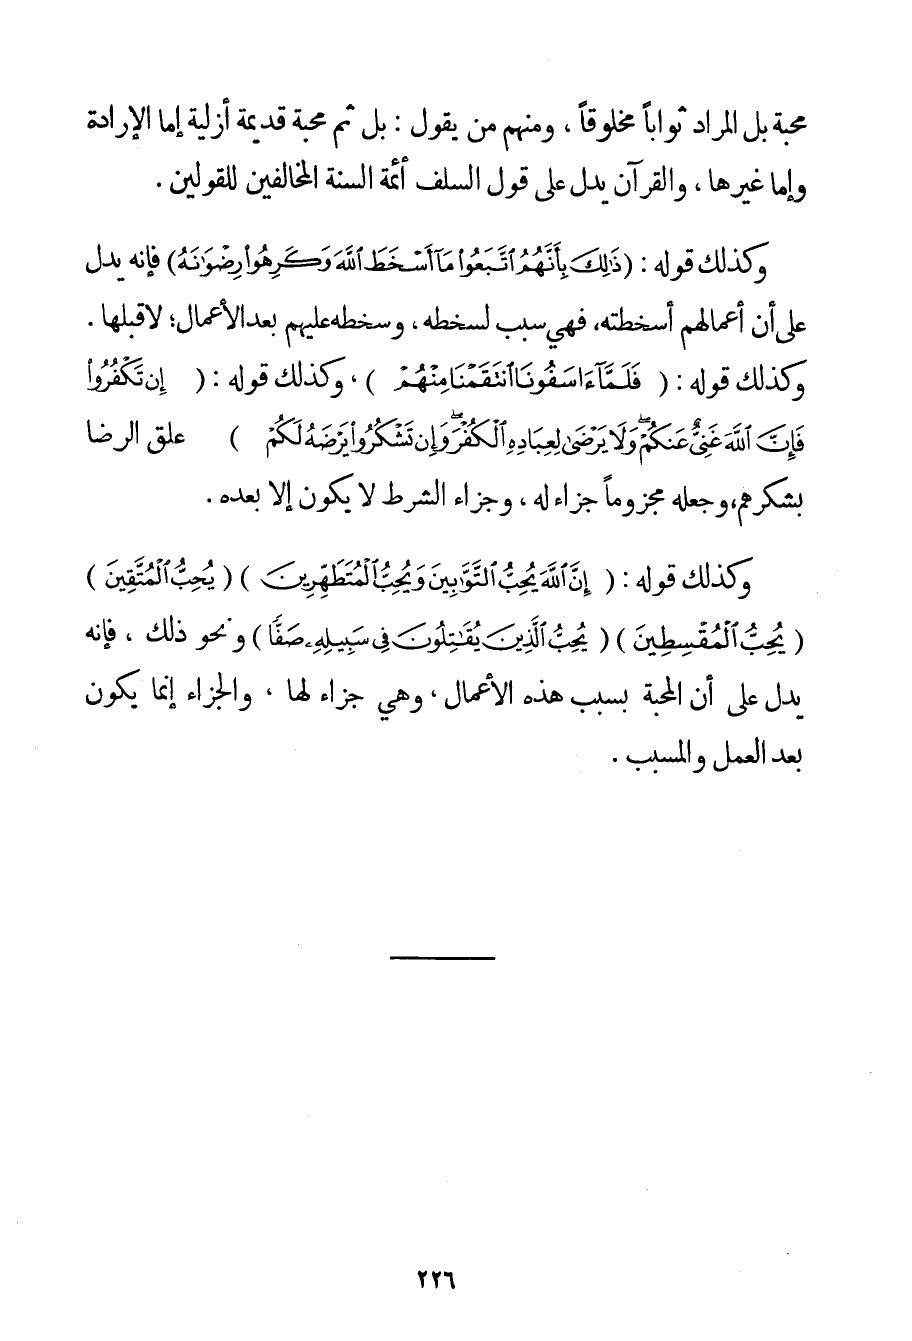 محبة بل المراد ثواباً مخلوقاً ، ومنهم من يقول : بل ثم محبة قديمة أزلية إما الإرادة
وإما غيرها ، والقرآن يدل على قول السلف أئمة السنة المخالفين للقولين .
وكذلك قوله : ( ذَٰلِكَ بِأَنَّهُمُ ٱتَّبَعُوا۟ مَآ أَسْخَطَ ٱللَّهَ وَكَرِهُوا۟ رِضْوَٰنَهُۥ ) فإنه يدل
على أن أعمالهم أسخطته، فهي سبب لسخطه ، وسخطه عليهم بعد الأعمال؛ لا قبلها .
وكذلك قوله : ( فَلَمَّآ ءَاسَفُونَا ٱنتَقَمْنَا مِنْهُمْ ) ، وكذلك قوله : ( إِن تَكْفُرُوا۟
فَإِنَّ ٱللَّهَ غَنِىٌّ عَنكُمْ ۖ وَلَا يَرْضَىٰ لِعِبَادِهِ ٱلْكُفْرَ ۖ وَإِن تَشْكُرُوا۟ يَرْضَهُ لَكُمْ ) علق الرضا
بشكرهم، وجعله مجزوماً جزاء له ، وجزاء الشرط لا يكون إلا بعده .
وكذلك قوله : ( إِنَّ ٱللَّهَ يُحِبُّ ٱلتَّوَّٰبِينَ وَيُحِبُّ ٱلْمُتَطَهِّرِينَ ) ( يُحِبُّ ٱلْمُتَّقِينَ )
( يُحِبُّ ٱلْمُقْسِطِينَ ) ( يُحِبُّ ٱلَّذِينَ يُقَٰتِلُونَ فِى سَبِيلِهِۦ صَفًّا ) ونحو ذلك ، فإنه
يدل على أن المحبة بسبب هذه الأعمال ، وهي جزاء لها ، والجزاء إنما يكون
بعد العمل والمسبب .
٢٢٦